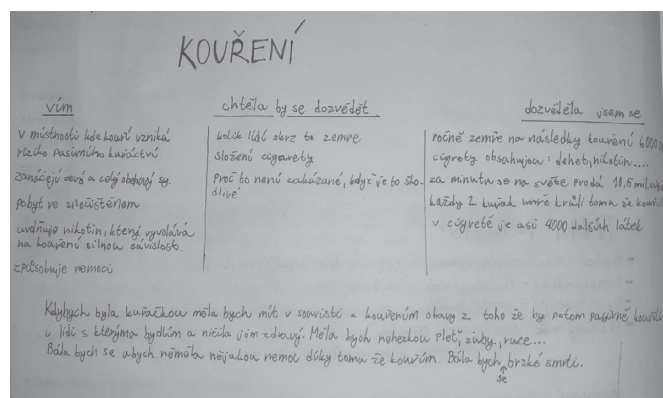 KOUŘENÍ
vím
v místnosti kde kouří vzniká
riziko pasivního kuřáctví
zanášejí cévy a celý oběhový sy.
pobyt ve znečištěném
uvolňuje nikotin, který vyvolává
na kouření silnou závislost.
způsobuje nemoci
chtěla by se dozvědět
kolik lidí skrz to zemře
složení cigarety
proč to není zakázané, když je to ško-
dlivé
dozvěděla jsem se
ročně zemře na následky kouření
cigarety obsahujou: dehet, nikotin....
za minutu se na světe prodá 10,5 mil.
každy 2. kuřák umře kvůli tomu že kouřil
v cigaretě je asi 4000 dalších látek
Kdybych byla kuřačkou měla bych mít v souvisti s kouřením obavy z toho že by potom pasivně kouřili
i lidi s kterýma bydlím a ničila jim zdraví. Měla bych nehezkou pleť, zuby, ruce...
Bála bych se abych neměla nějakou nemoc díky tomu že kouřím. Bála bych se brzké smrti.